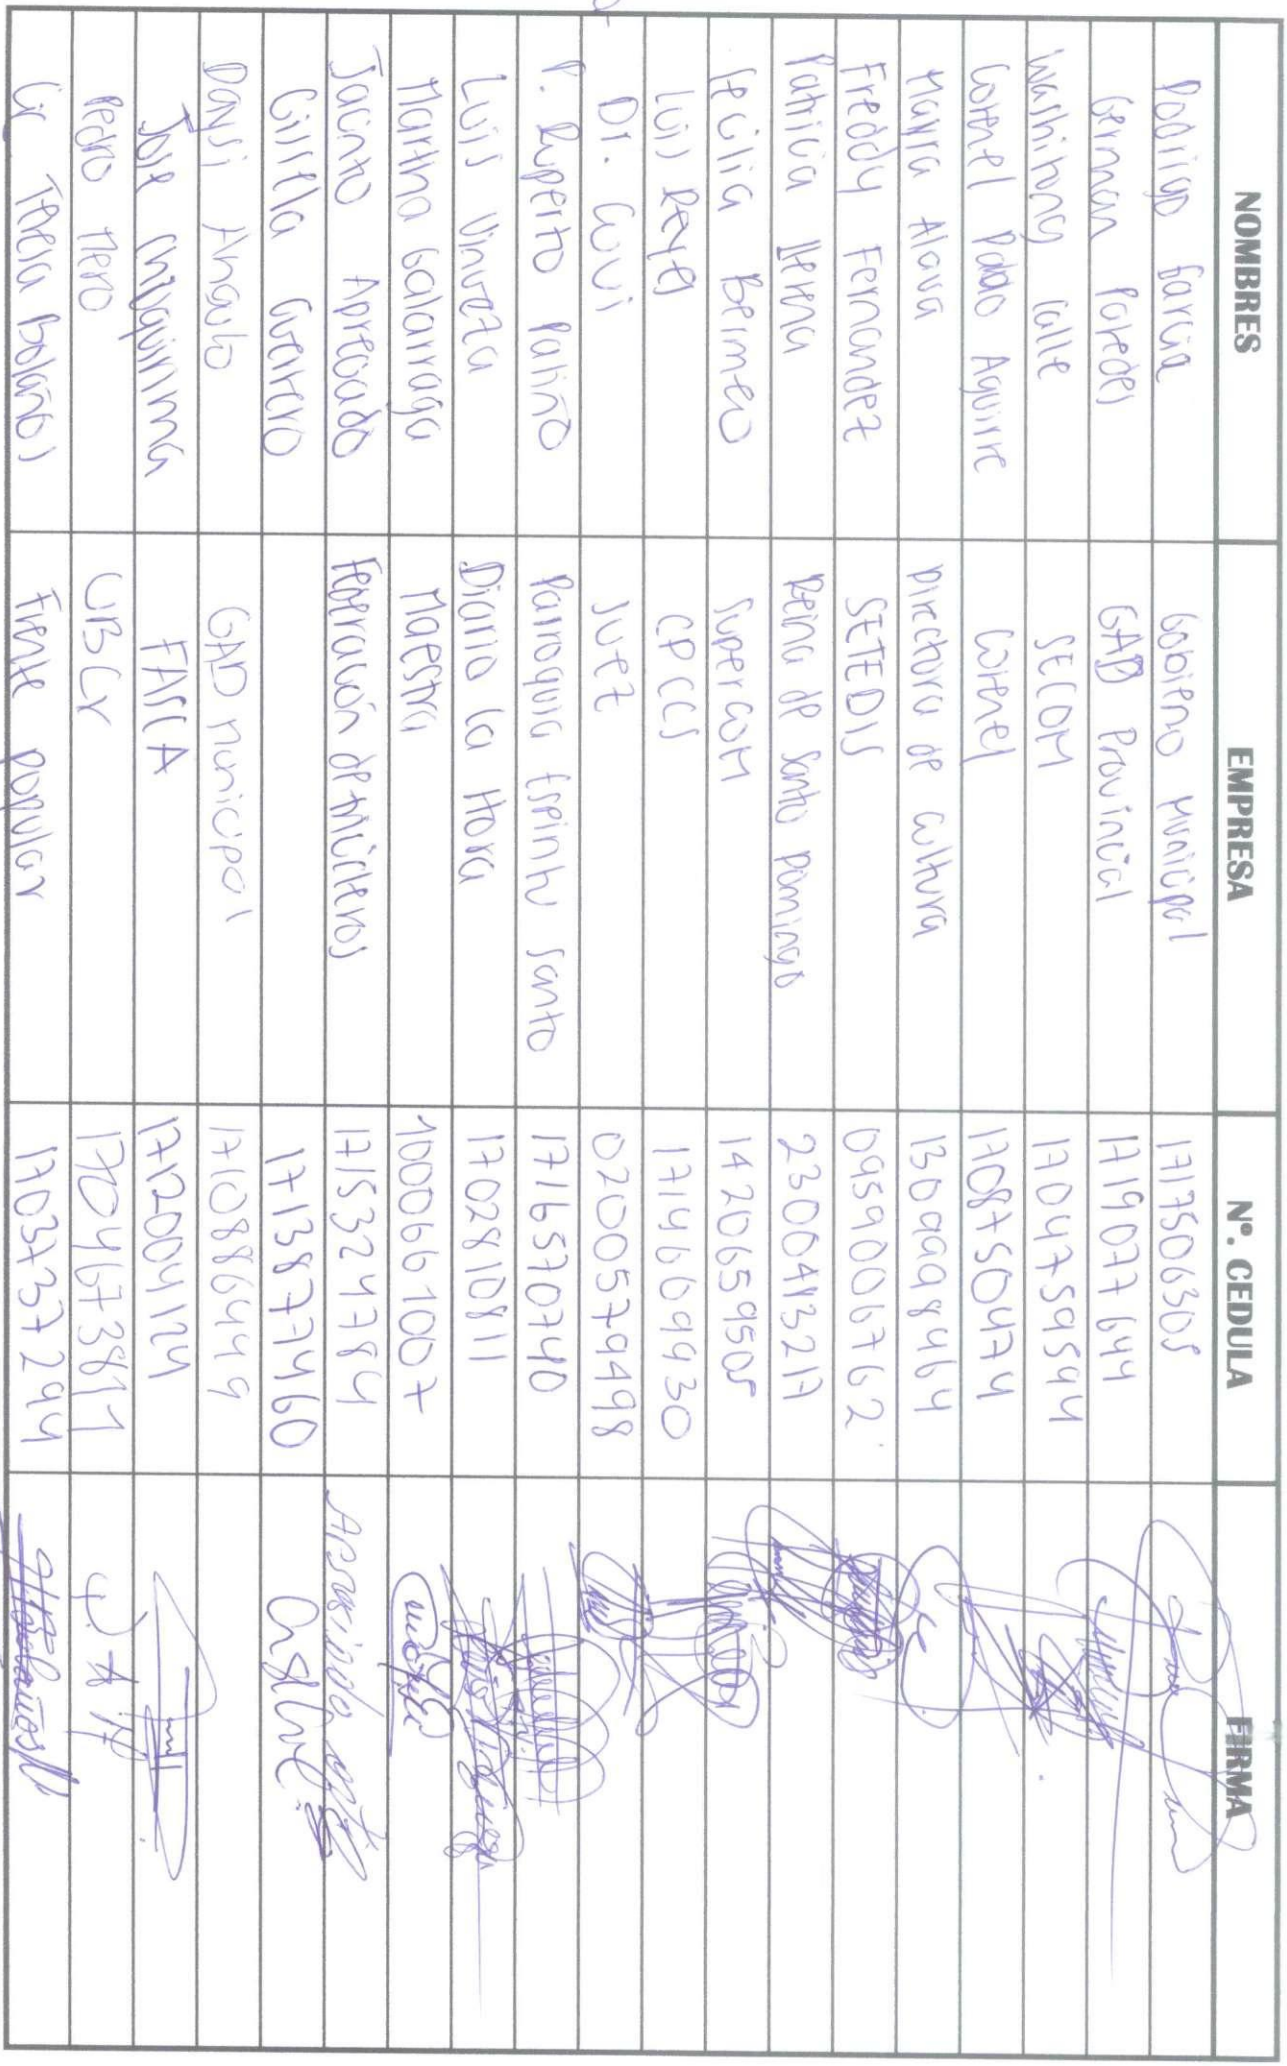 NOMBRES EMPRESA Nº. CEDULA FIRMA
Rodrigo Garcia Gobierno Municipal 1717506305
German Paredes GAD Provincial 1719077644
Washitong Calle SECOM 1704759594
Coronel Pablo Aguirre Coronel 1708750474
Mayra Alava Directora de Cultura 1309998464
Freddy Fernandez SETEDIS 0959006762
Patricia Reina de Santo Domingo 2300413217
Cecilia Bermeo SupercOM 1420659505
Luis Reyes CPCCS 1714609930
Dr. Guui Juez 0200579498
P. Ruperto Patiño Parroquia Espiritu Santo 1716570740
Luis Vinueza Diario la Hora 1702810811
Martha Galarraga Maestra 1000661007
Jacinto Federación de tricicleros 1715324784
Gissella Guerrero 1713877460
Daysi Angulo GAD municipal 1710886449
Jose FASCA 1712004124
Pedro Mero UBCY 1704673811
Teresa Bolaños Frente popular 1703737294